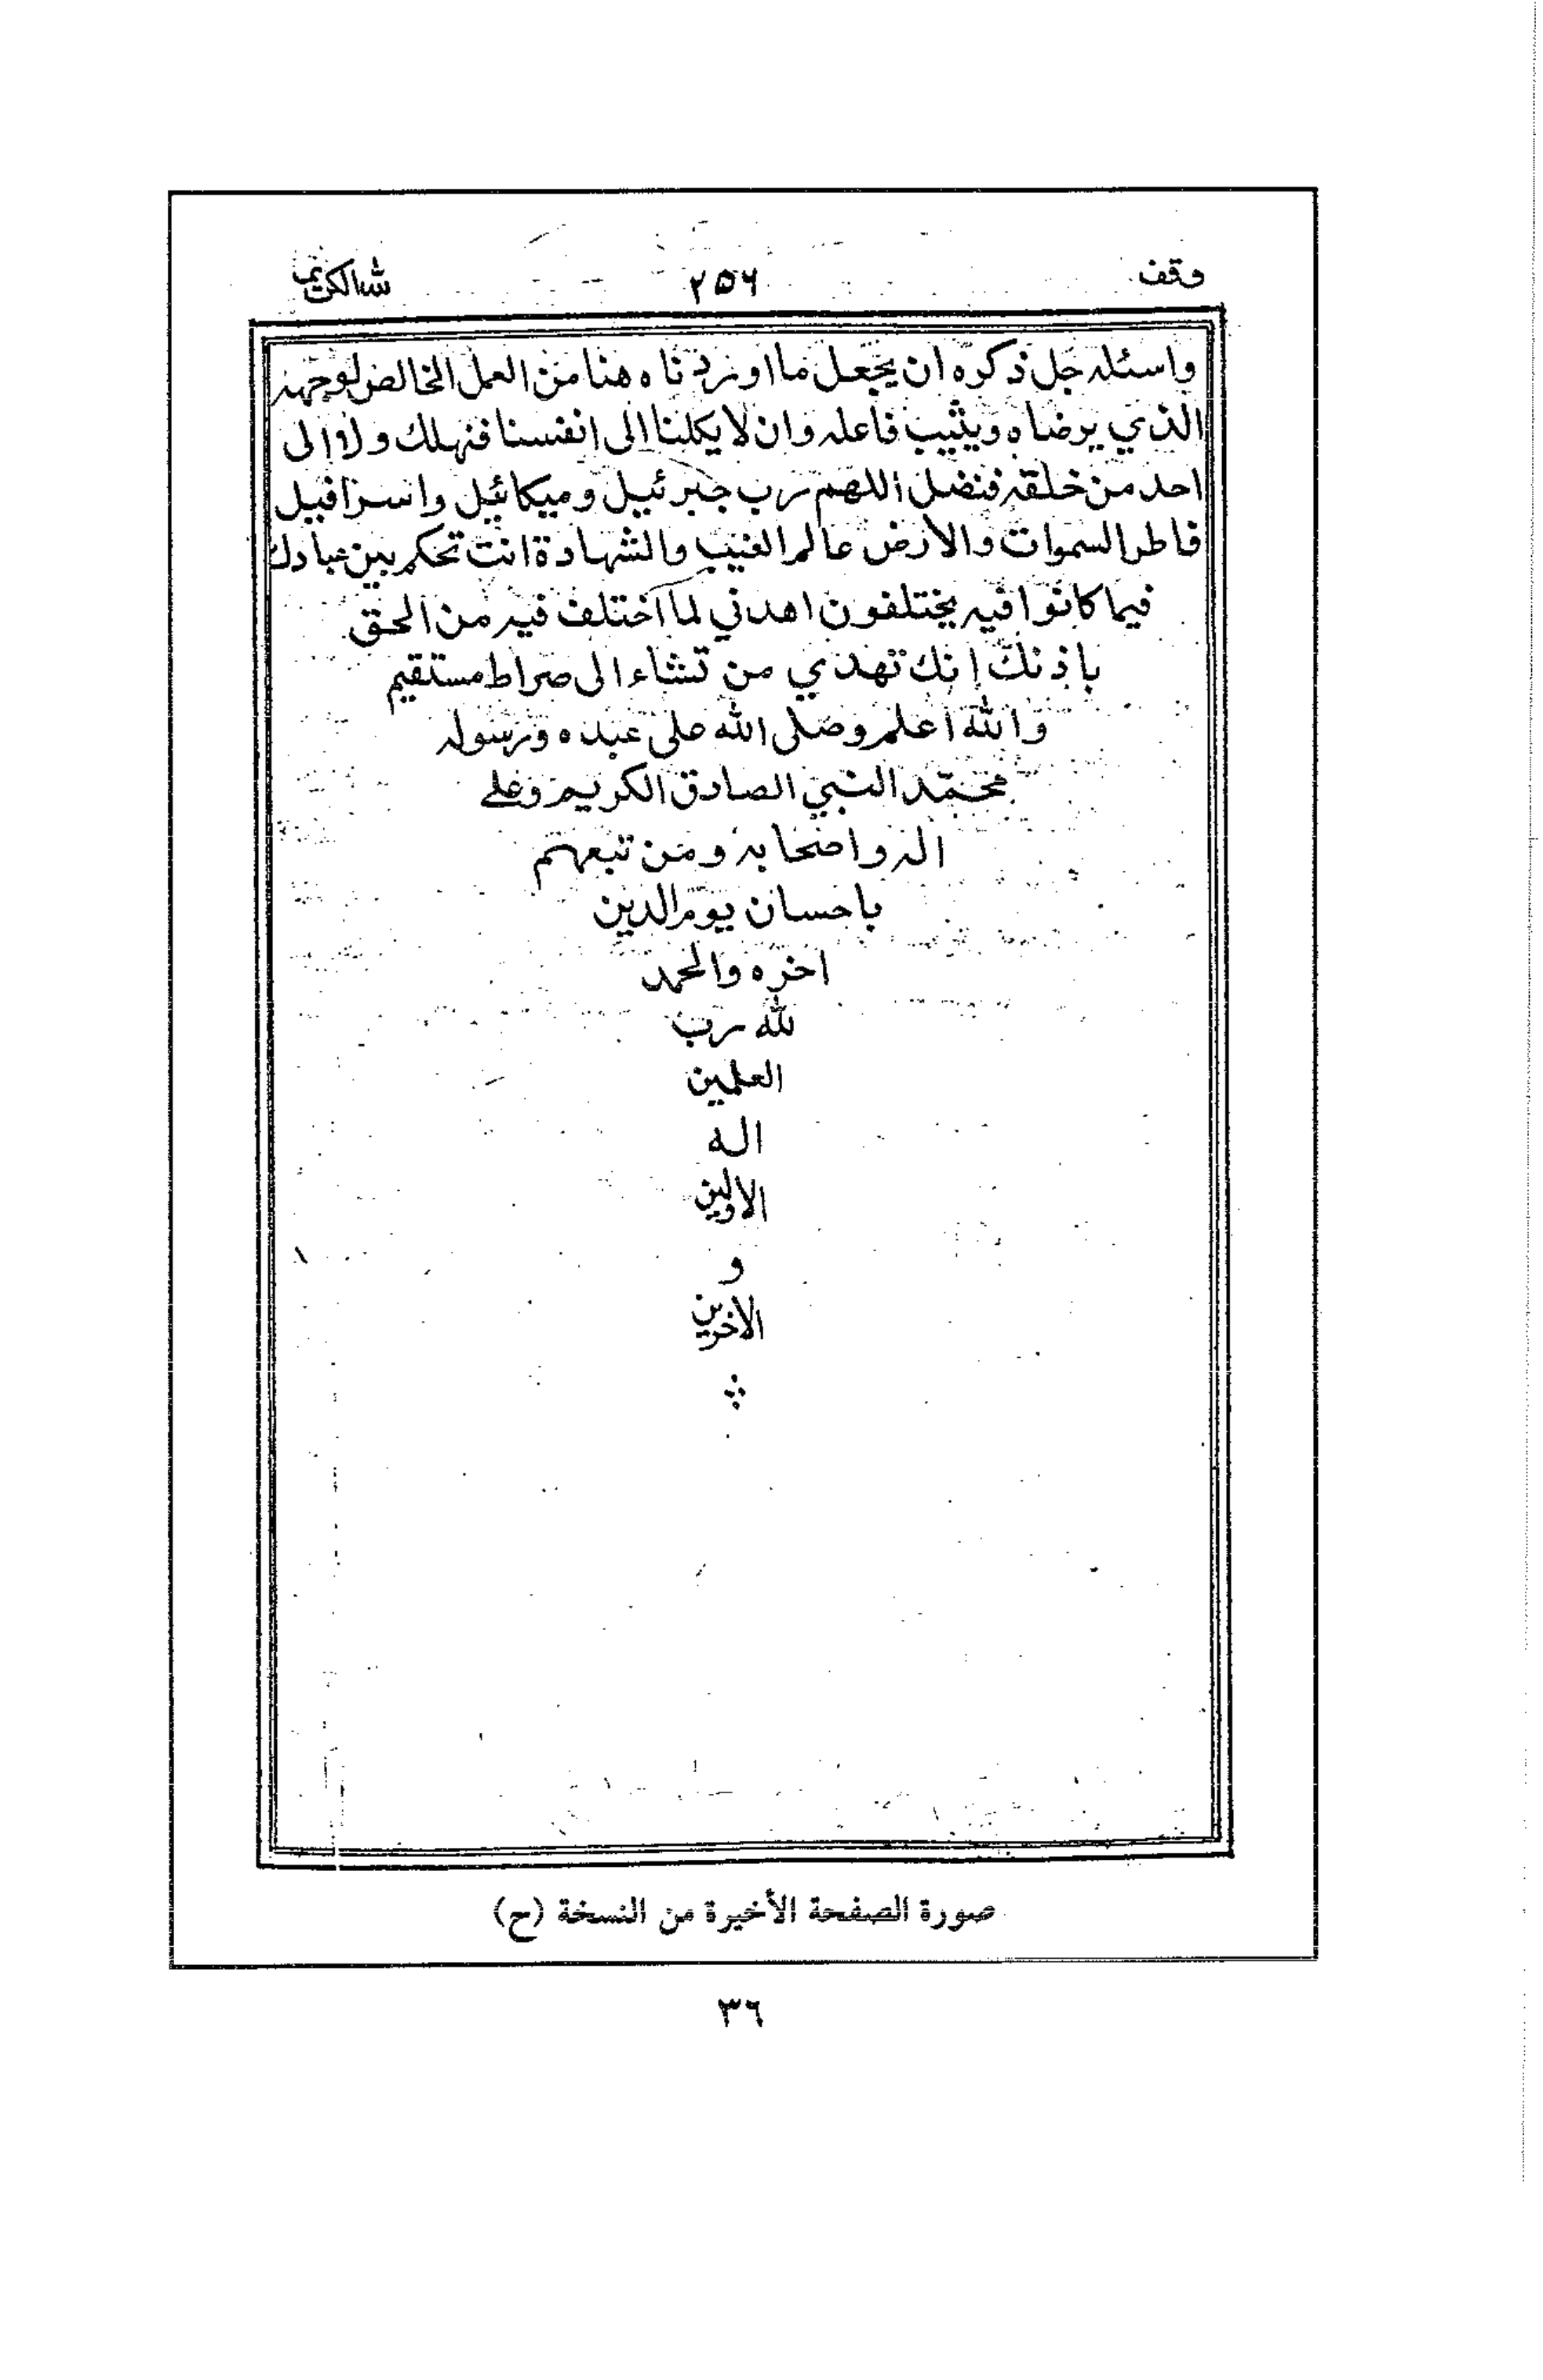 وقف ٢٥٦ لله الكريم
واسئله جل ذكره ان يجعل ما اوردناه هنا من العمل الخالص لوجهه
الذي يرضاه ويثيب فاعله وان لا يكلنا الى انفسنا فنهلك ولا الى
احد من خلقه فنضل اللهم رب جبرئيل وميكائيل واسرافيل
فاطر السموات والارض عالم الغيب والشهادة انت تحكم بين عبادك
فيما كانوا فيه يختلفون اهدني لما اختلف فيه من الحق
باذنك انك تهدي من تشاء الى صراط مستقيم
والله اعلم وصلى الله على عبده ورسوله
محمّد النبي الصادق الكريم وعلى
اله واصحابه ومن تبعهم
باحسان يوم الدين
اخره والحمد
لله رب
العلمين
اله
الاولين
و
الاخرين
صورة الصفحة الأخيرة من النسخة (ح)
٣٦